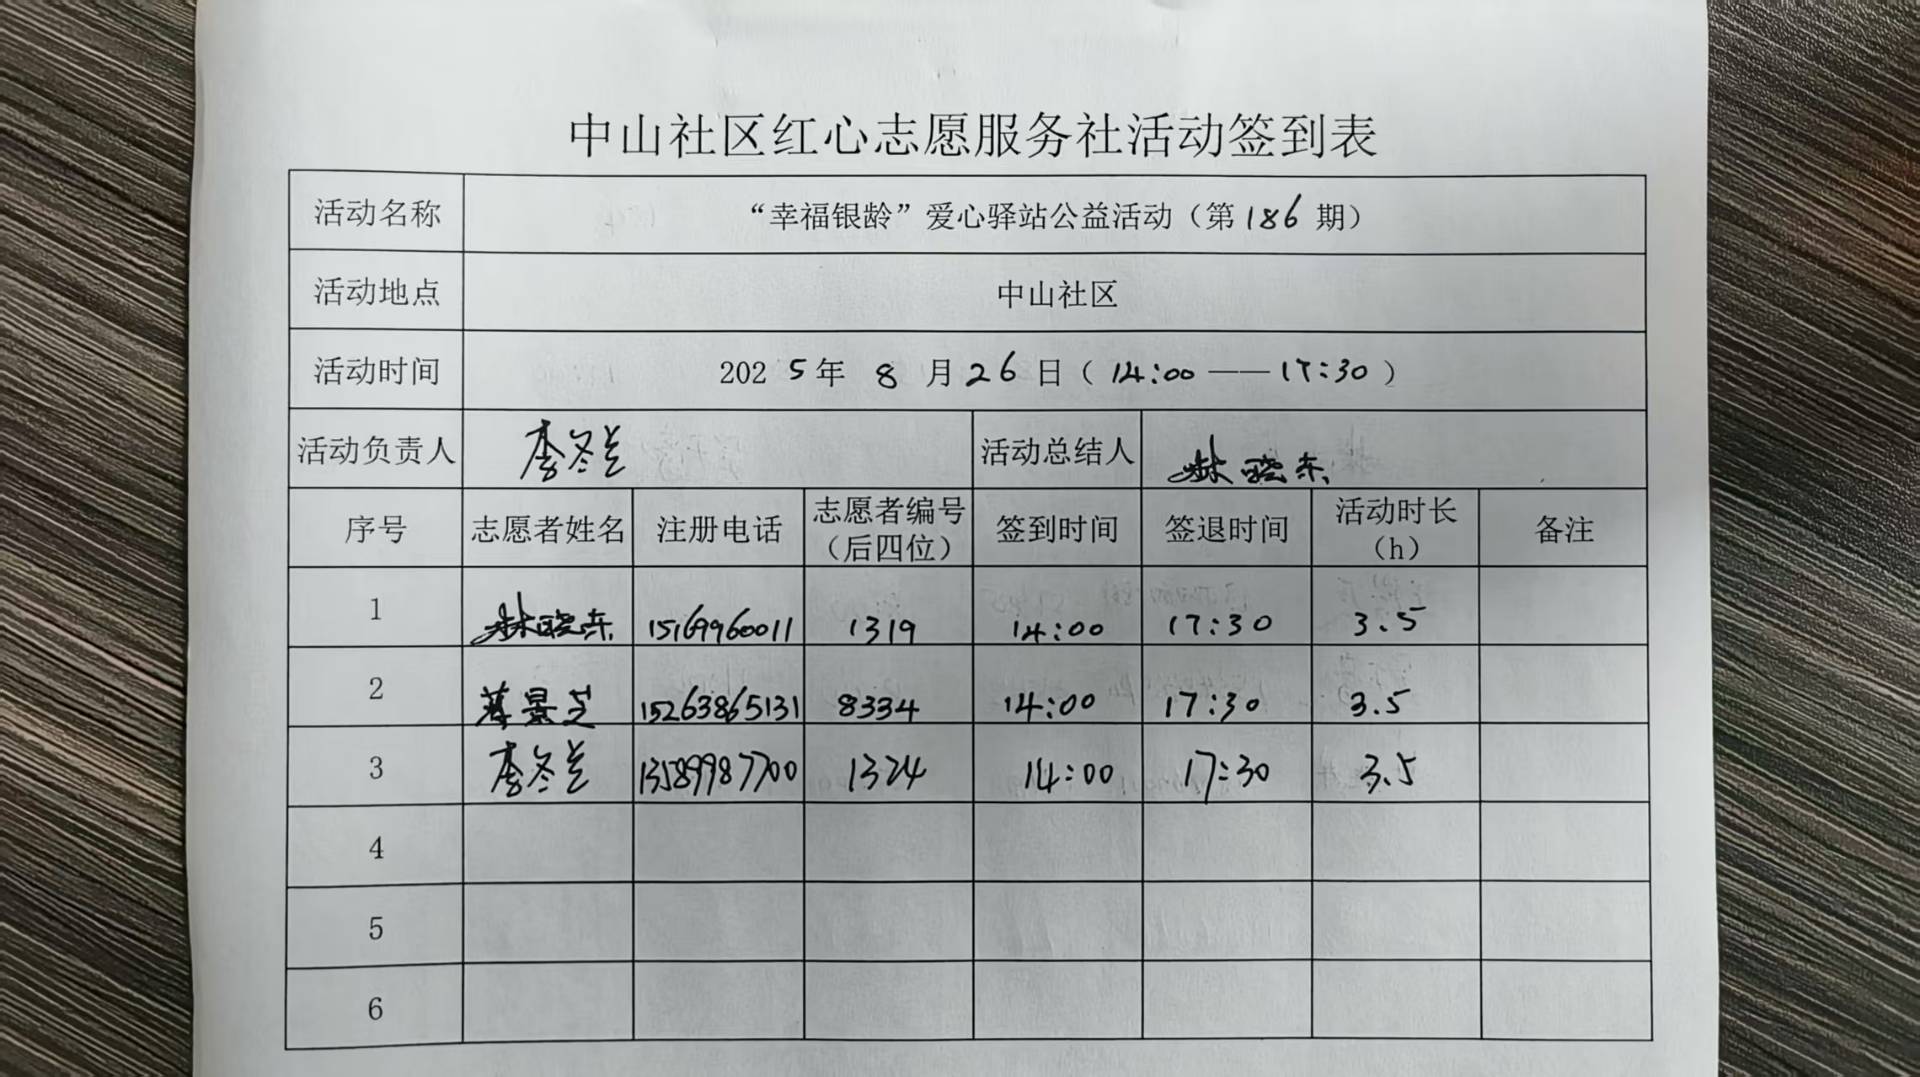 中山社区红心志愿服务社活动签到表
活动名称 “幸福银龄”爱心驿站公益活动（第 186 期）
活动地点 中山社区
活动时间 2025年 8 月 26 日（14:00 —— 17:30 ）
活动负责人 李冬兰 活动总结人 林晓东
序号 志愿者姓名 注册电话 志愿者编号（后四位） 签到时间 签退时间 活动时长（h） 备注
1 林晓东 15169960011 1319 14:00 17:30 3.5
2 景芝 15263865131 8334 14:00 17:30 3.5
3 李冬兰 13589987700 1324 14:00 17:30 3.5
4
5
6